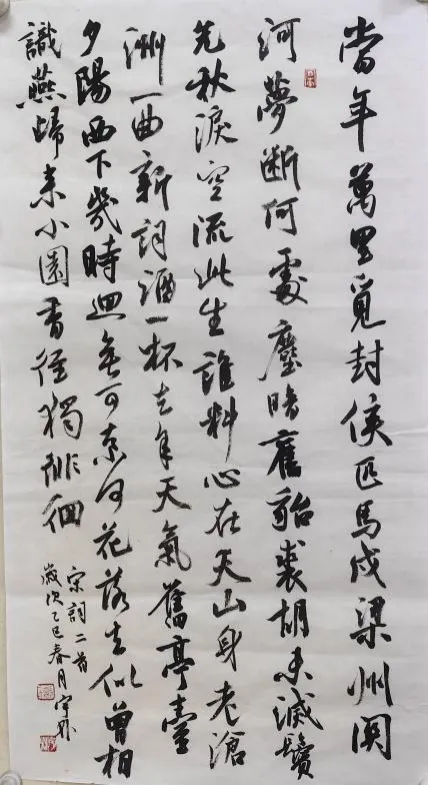 當年萬里覓封侯匹馬戍梁州関
河夢断何處塵暗舊貂裘胡未滅鬢
先秋淚空流此生誰料心在天山身老滄
洲一曲新詞酒一杯去年天氣舊亭臺
夕陽西下幾時迴無可奈何花落去似曾相
識燕歸来小園香徑獨徘徊
宋詞二首
歲次乙巳春月